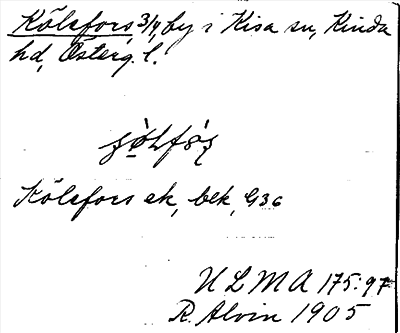 Kölefors 3/4, by i Kisa sn, Kinda
hd, Österg. l.
Kölefors ek, bek, G36
ULMA 175:97
R. Alvin 1905